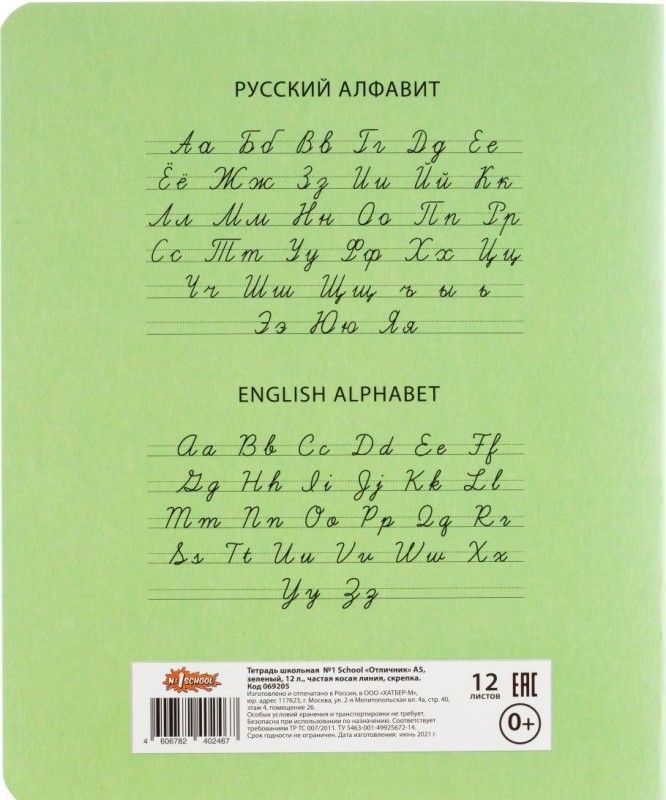 РУССКИЙ АЛФАВИТ
Аа Бб Вв Гг Дд Ее
Ёё Жж Зз Ии Йй Кк
Лл Мм Нн Оо Пп Рр
Сс Тт Уу Фф Хх Цц
Чч Шш Щщ ъ ы ь
Ээ Юю Яя
ENGLISH ALPHABET
Aa Bb Cc Dd Ee Ff
Gg Hh Ii Jj Kk Ll
Mm Nn Oo Pp Qq Rr
Ss Tt Uu Vv Ww Xx
Yy Zz
№1 SCHOOL
Тетрадь школьная №1 School «Отличник» А5,
зеленый, 12 л., частая косая линия, скрепка.
Код 069205
Изготовлено и отпечатано в России, в ООО «ХАТБЕР-М»,
юр. адрес 117623, г. Москва, ул. 2-я Мелитопольская вл. 4а, стр. 40,
этаж 4, помещение 26.
Особых условий хранения и транспортировки не требует.
Безопасна при использовании по назначению. Соответствует
требованиям ТР ТС 007/2011. ТУ 5463-001-49925672-14.
Срок годности не ограничен. Дата изготовления: июнь 2021 г.
4 606782 402467
12
листов
EAC
0+